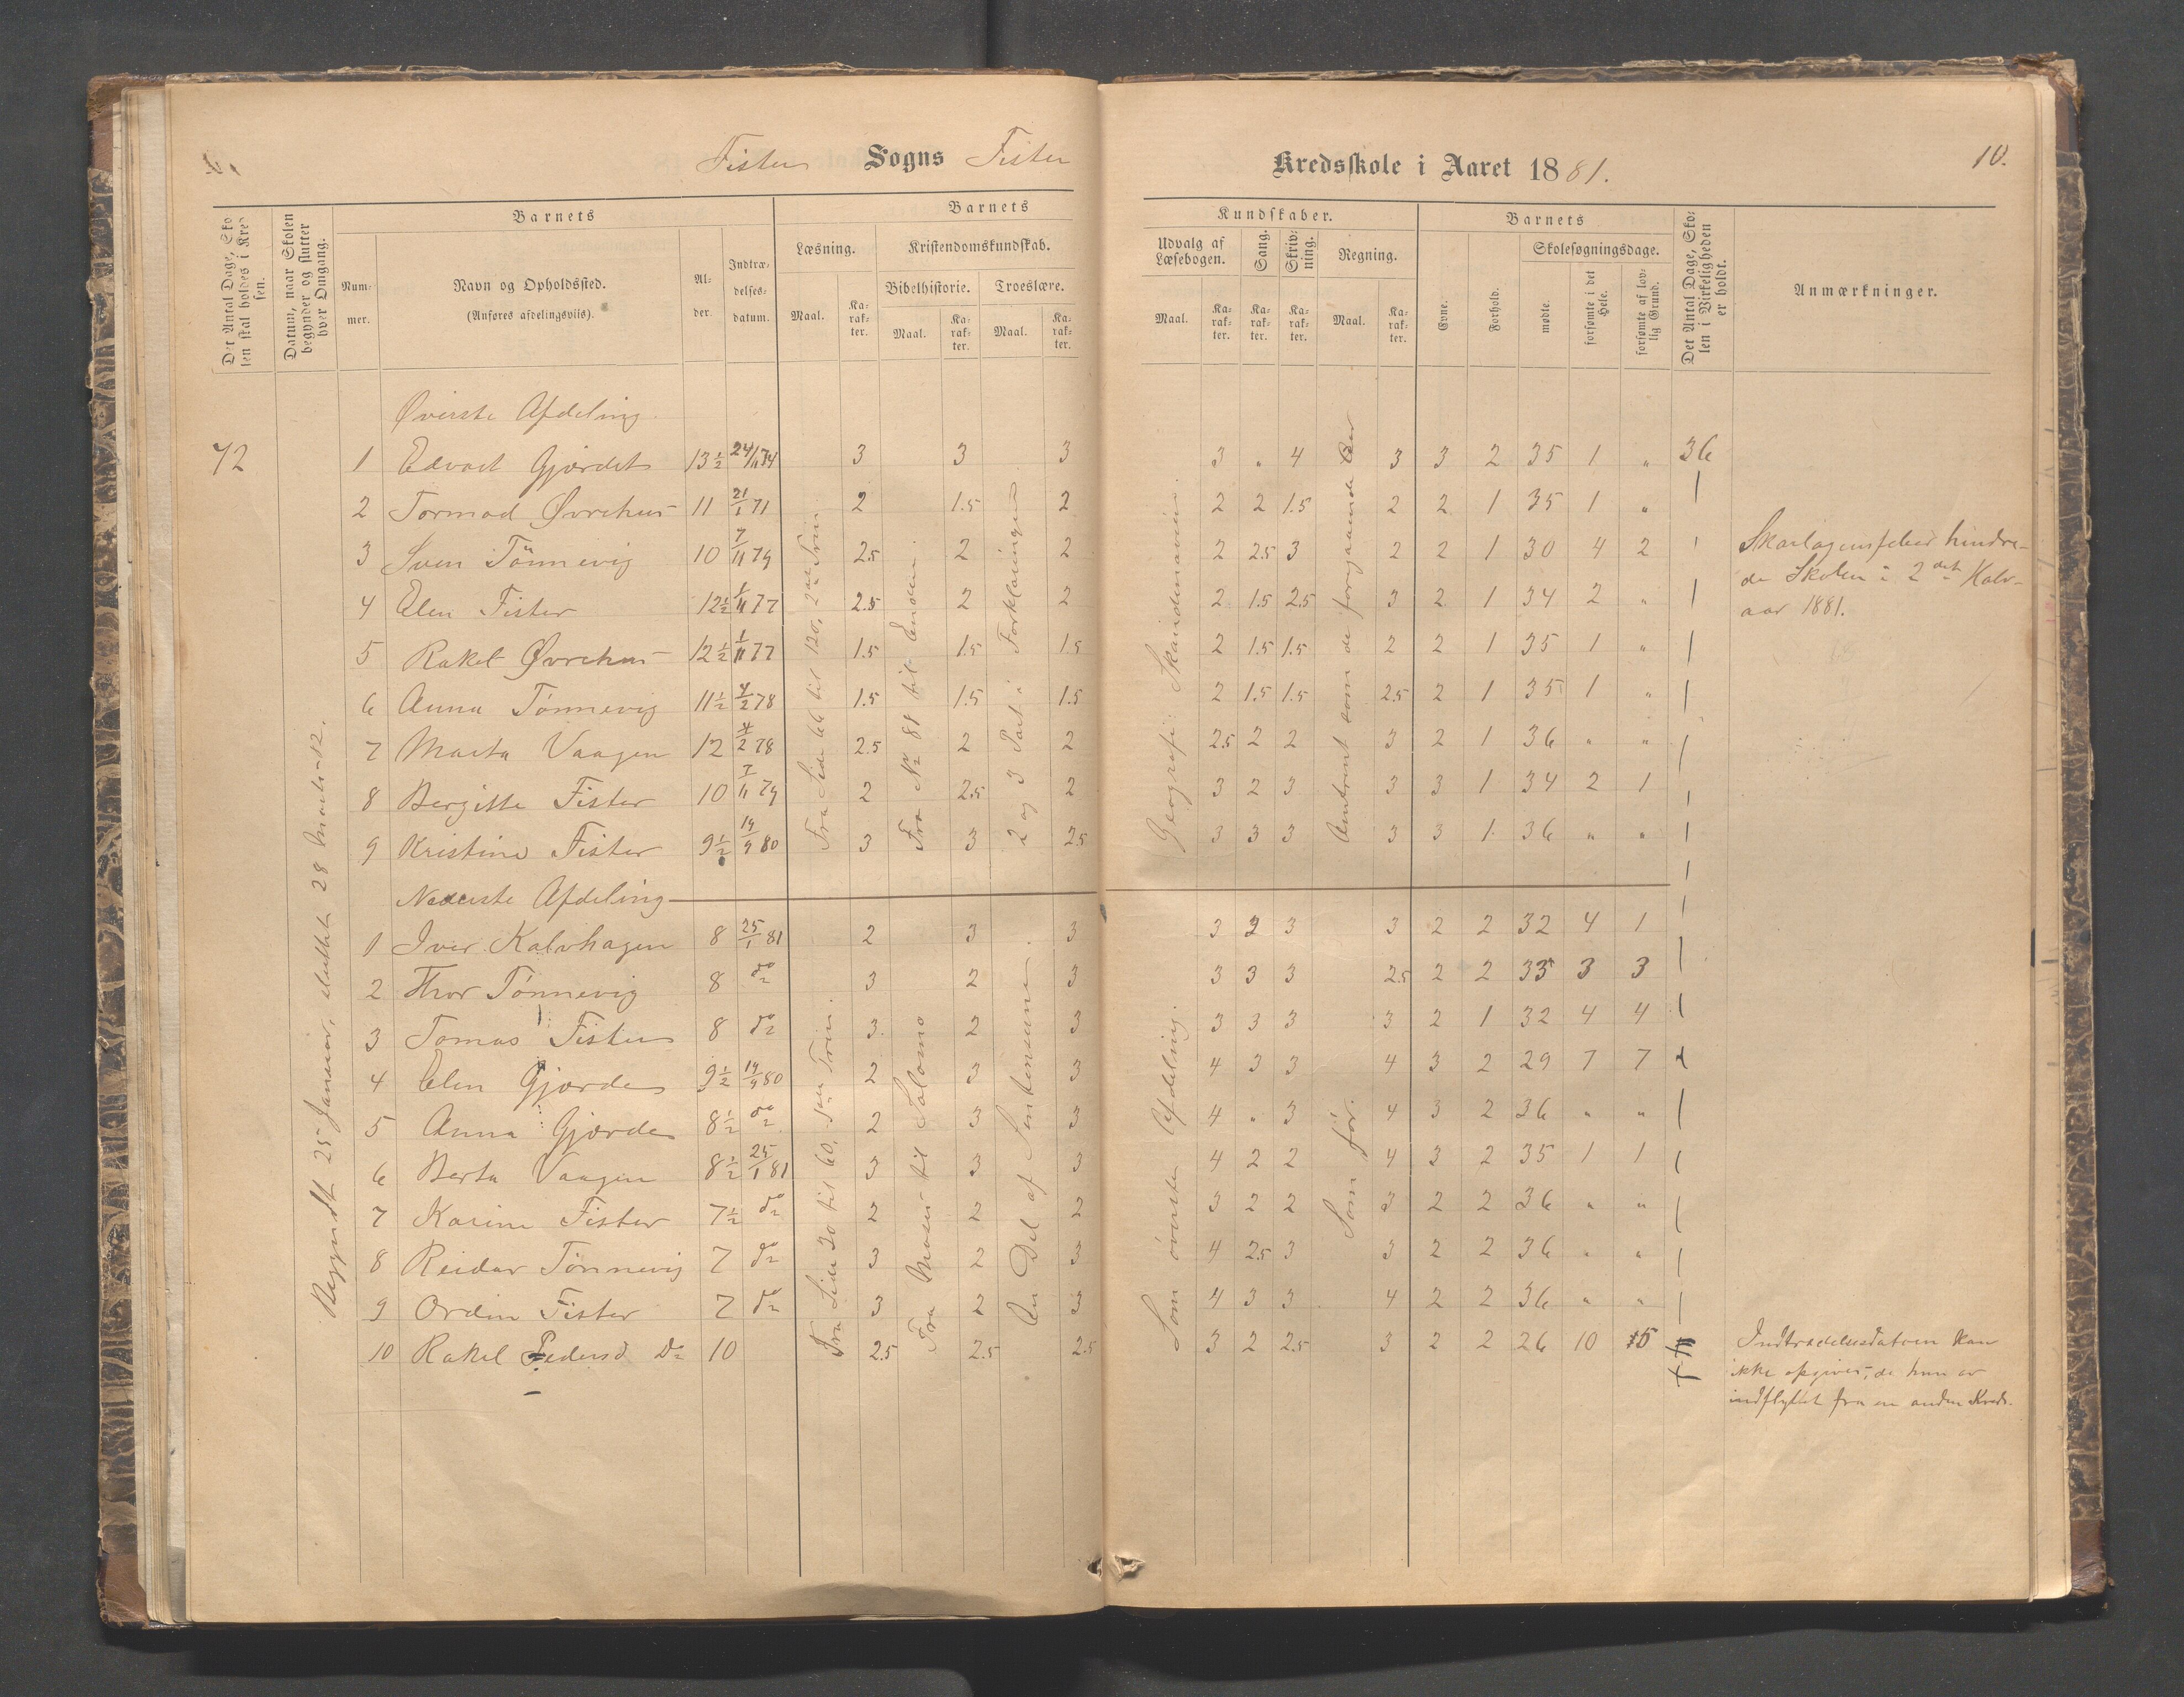 Fister Sogns Fister Kredsskole i Aaret 1881. 10.
Det Antal Dage, Skolen skal holdes i Kredsen.
Datum, naar Skolen begynder og slutter hver Omgang.
Barnets
Nummer.
Navn og Opholdssted.
(Anføres afdelingsviis).
Alder.
Indtrædelsesdatum.
Barnets Kundskaber.
Læsning.
Maal. Karakter.
Kristendomskundskab.
Bibelhistorie. Troeslære.
Maal. Karakter. Maal. Karakter.
Udvalg af Læsebogen.
Maal. Karakter.
Sang. Karakter.
Skrivning. Karakter.
Regning.
Maal. Karakter.
Barnets
Evne. Forhold.
Skolesøgningsdage.
mødte. forsømte i det Hele. forsømte af lovlig Grund.
Det Antal Dage, Skolen i Virkeligheden er holdt.
Anmærkninger.
Øverste Afdeling
72 1 Edvart Gjørdet 13½ 24/11 74 3 3 3 3 „ 4 3 3 2 35 1 „ 36
2 Tormod Øvrehus 11 21/1 71 2 1.5 2 2 2 1.5 2 2 1 35 1 „
3 Sven Tönnevig 10 7/11 79 2.5 2 2 2 2.5 3 2 2 1 30 4 2
4 Elen Fister 12½ 1/11 77 2.5 2 2 2 1.5 2.5 3 2 1 34 2 „
5 Rakel Øvrehus 12½ 1/11 77 1.5 1.5 1.5 2 1.5 1.5 2 2 1 35 1 „
6 Anna Tönnevig 11½ 4/2 78 1.5 1.5 1.5 2 1.5 1.5 2.5 2 1 35 1 „
7 Marta Vaagen 12 4/2 78 2.5 2 2 2.5 2 2 3 2 1 36 „ „
8 Bergitte Fister 10 7/11 79 2 2.5 2 3 2 3 3 3 1 34 2 1
9 Kristine Fister 9½ 14/9 80 3 3 2.5 3 3 3 3 3 1 36 „ „
Begyndt 25 Januar, sluttet 28 Marts
Fra Side 66 til 120, 2det Trin.
Fra No 81 til Enden.
2 og 3 Part i Forklaringen
Geografi: Skandinavien.
Omtrent som de foregaaende Aar
Skarlagensfeber hindrede Skolen i 2det Halvaar 1881.
Nederste Afdeling
1 Iver Kalvhagen 8 25/1 81 2 3 3 3 2 3 3 2 2 32 4 1
2 Thor Tönnevig 8 do 3 2 3 3 3 3 2.5 2 2 33 3 3
3 Tomas Fister 8 do 3 2 3 3 3 3 3 2 1 32 4 4
4 Elen Gjørde 9½ 14/9 80 2 3 3 4 3 3 4 3 2 29 7 7
5 Anna Gjørde 8½ do 2 3 3 4 „ 3 4 3 2 36 „ „
6 Berta Vaagen 8½ 25/1 81 3 3 3 4 2 2 4 3 2 35 1 1
7 Karine Fister 7½ do 2 2 2 3 2 2 3 2 2 36 „ „
8 Reidar Tönnevig 7 do 3 2 3 4 2.5 3 3 2 2 36 „ „
9 Ordin Fister 7 do 3 2 3 4 3 3 4 2 2 36 „ „
10 Rakel Pedersd Do 10 2.5 2.5 2.5 3 2 2.5 3 2 2 26 10
Fra Side 30 til 60, 1ste Trin.
Fra Moses til Salomo
En Del af Sentenserne.
Som øverste Afdeling.
Som før.
Indtrædelsesdatoen kan
ikke opgives, da hun er
indflyttet fra en anden Kreds.